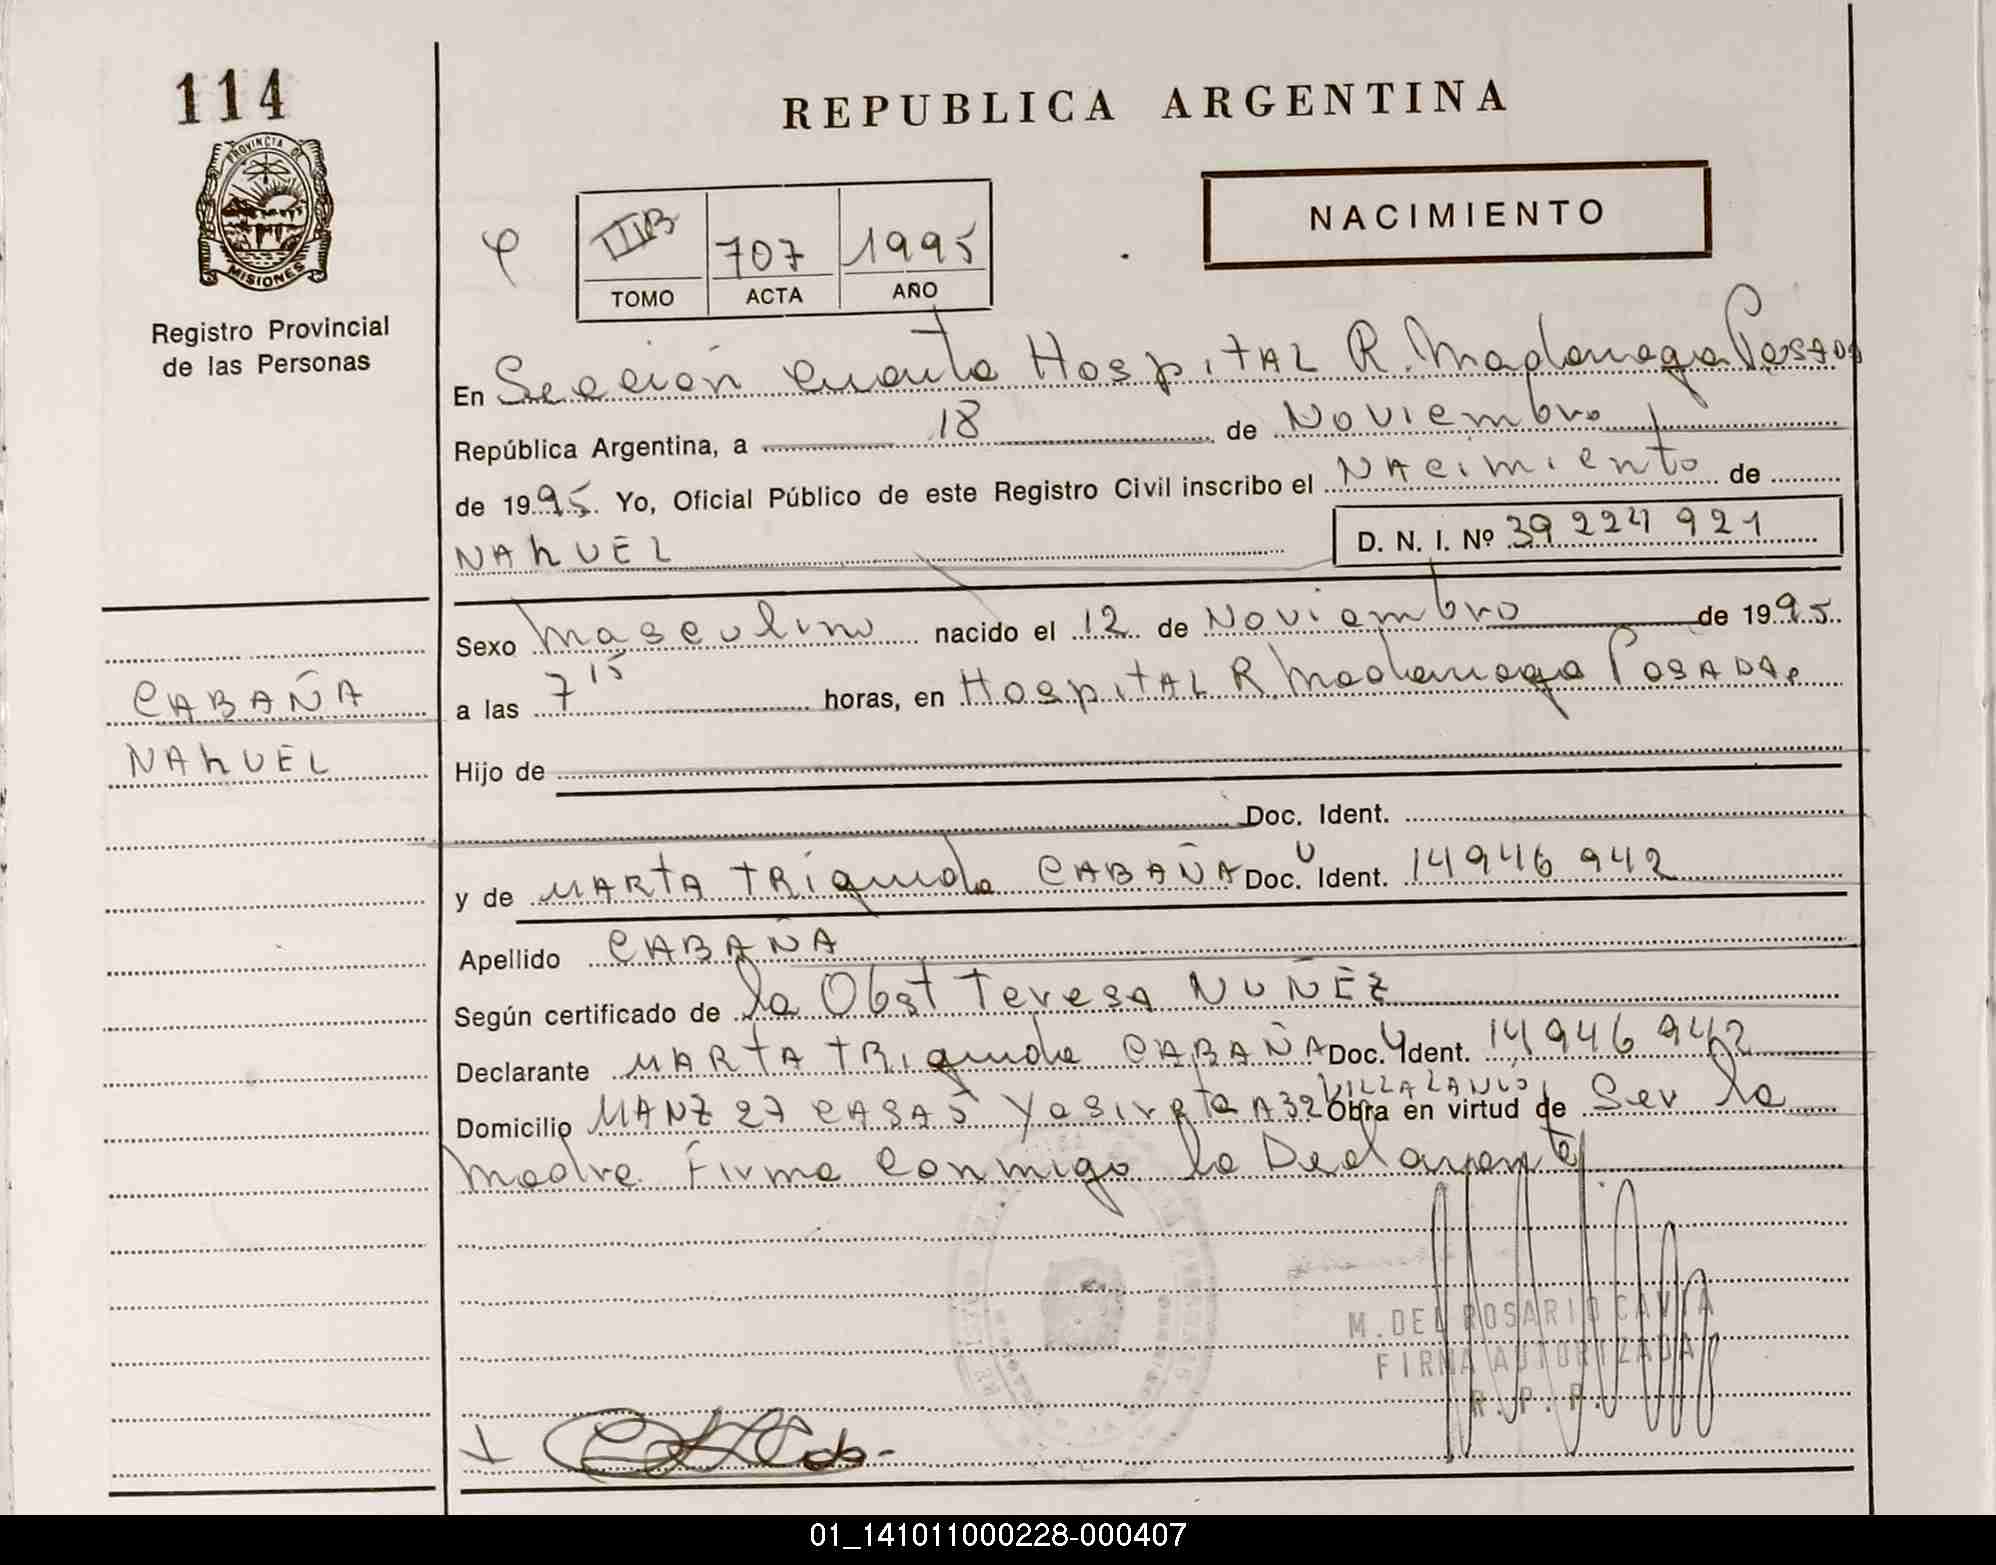 114
REPUBLICA ARGENTINA
PROVINCIA DE
MISIONES
Registro Provincial
de las Personas
NACIMIENTO
IIIB 707 1995
TOMO ACTA AÑO
En Sección cuarta Hospital R. Madariaga Posadas
República Argentina, a 18 de Noviembre
de 1995. Yo, Oficial Público de este Registro Civil inscribo el NAcimiento de
NAhUEL D. N. I. Nº 39 224 921
Sexo Masculino nacido el 12 de Noviembre de 1995.
a las 7 15 horas, en Hospital R. Madariaga Posadas
CABAÑA
NAhUEL
Hijo de
Doc. Ident.
y de MARTA TRiguida CABAÑA Doc. U Ident. 14946 942
Apellido CABAÑA
Según certificado de la Obst Teresa NUÑEZ
Declarante MARTA TRiguida CABAÑA Doc. U Ident. 14946 942
Domicilio MANZ 27 CASA 5 Yasireta A32 VILLA LANUS Obra en virtud de Ser la
Madre Firma conmigo la Declarante
M. DEL ROSARIO CAVIA
FIRMA AUTORIZADA
R. P. P.
01_141011000228-000407